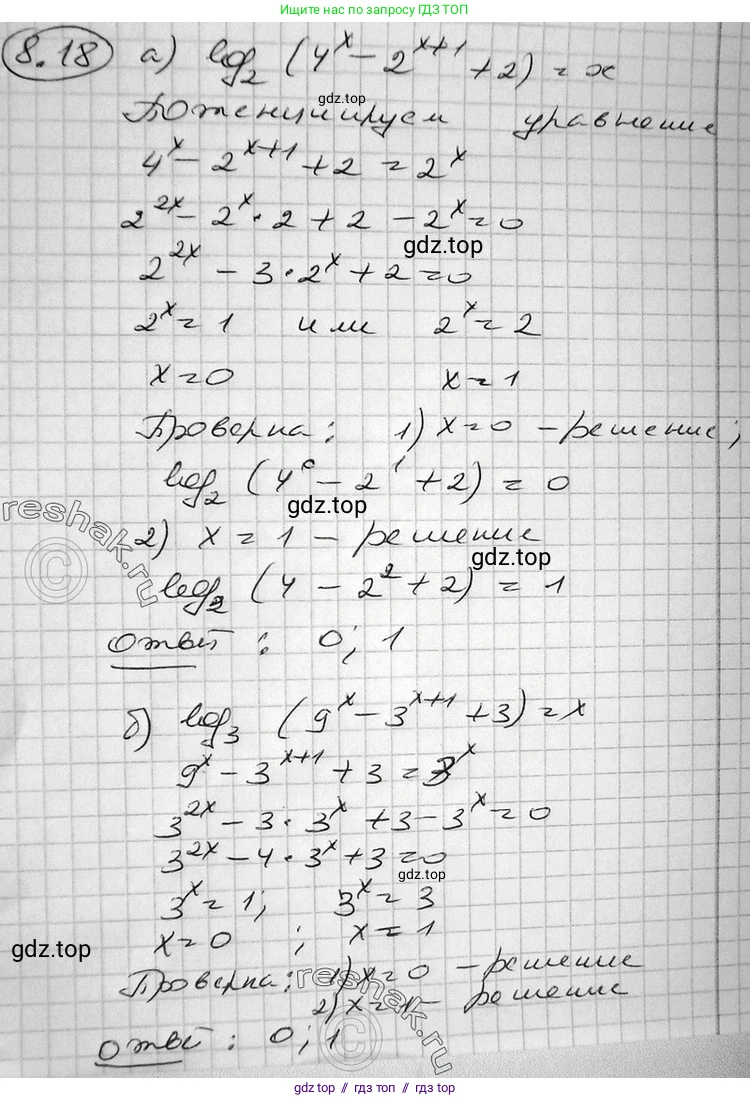 Ищите нас по запросу ГДЗ ТОП
8.18 а) log₂ (4ˣ - 2ˣ⁺¹ + 2) = x
Потенциируем уравнение
gdz.top
4ˣ - 2ˣ⁺¹ + 2 = 2ˣ
2²ˣ - 2ˣ · 2 + 2 - 2ˣ = 0
gdz.top
2²ˣ - 3 · 2ˣ + 2 = 0
2ˣ = 1 или 2ˣ = 2
x = 0 x = 1
Проверка: 1) x = 0 - решение;
log₂ (4⁰ - 2¹ + 2) = 0
gdz.top
reshak.ru
2) x = 1 - решение
gdz.top
log₂ (4 - 2² + 2) = 1
Ответ: 0; 1
б) log₃ (9ˣ - 3ˣ⁺¹ + 3) = x
9ˣ - 3ˣ⁺¹ + 3 = 3ˣ
3²ˣ - 3 · 3ˣ + 3 - 3ˣ = 0
3²ˣ - 4 · 3ˣ + 3 = 0
gdz.top
3ˣ = 1; 3ˣ = 3
x = 0 ; x = 1
gdz.top
Проверка: 1) x = 0 - решение
2) x = 1 - решение
reshak.ru
Ответ: 0; 1
gdz.top // гдз топ // gdz.top